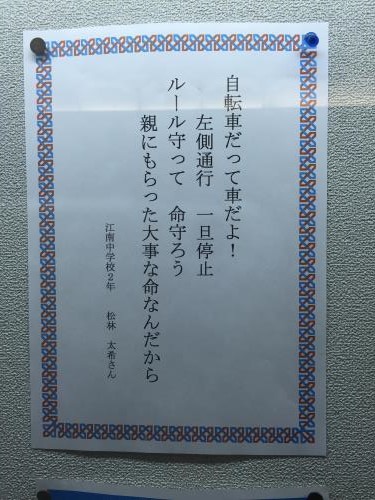 自転車だって車だよ！
左側通行　一旦停止
ルール守って　命守ろう
親にもらった大事な命なんだから
江南中学校２年　松林　太希さん